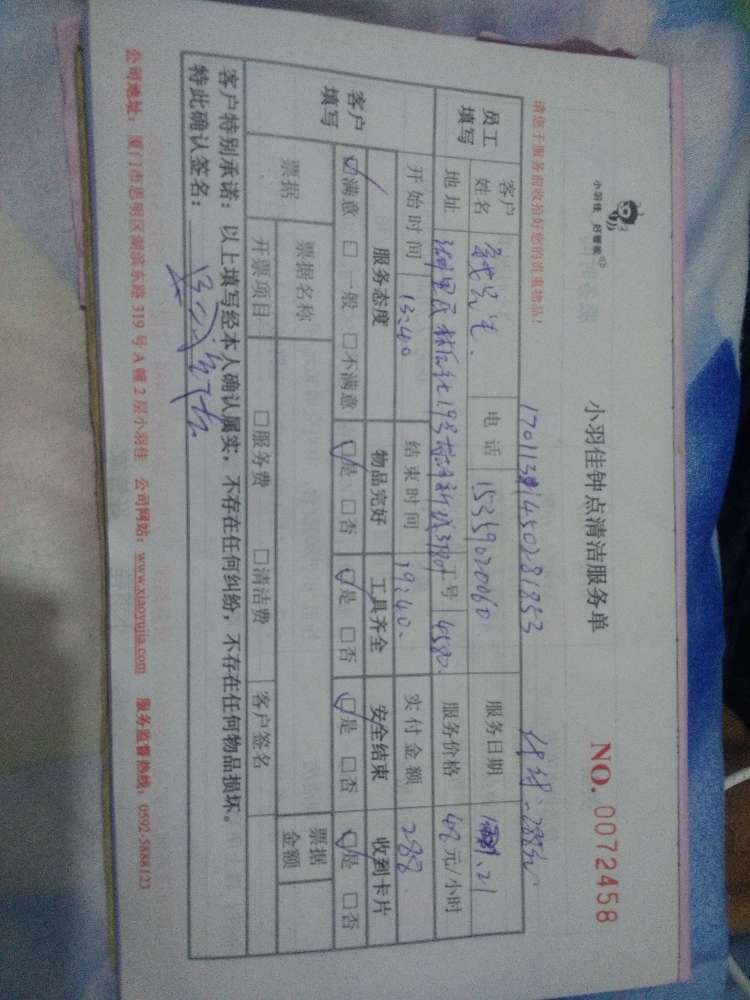 小羽佳 好管家
小羽佳钟点清洁服务单
NO. 0072458
请您于服务前收拾好您的贵重物品！
员工填写
客户姓名
电话 15359020060
服务日期
地址
工号 4580
服务价格 48元/小时
开始时间 13:40
结束时间 19:40
实付金额 288
客户填写
服务态度 物品完好 工具齐全 安全结束 收到卡片
☑满意 □一般 □不满意 ☑是 □否 ☑是 □否 ☑是 □否 ☑是 □否
票据 票据名称 票据金额
开票项目 □服务费 □清洁费 客户签名
客户特别承诺：以上填写经本人确认属实，不存在任何纠纷，不存在任何物品损坏。
特此确认签名：
公司地址：厦门市思明区湖滨东路319号A幢2层小羽佳 公司网站：www.xiaoyujia.com 服务监督热线：0592-5888123